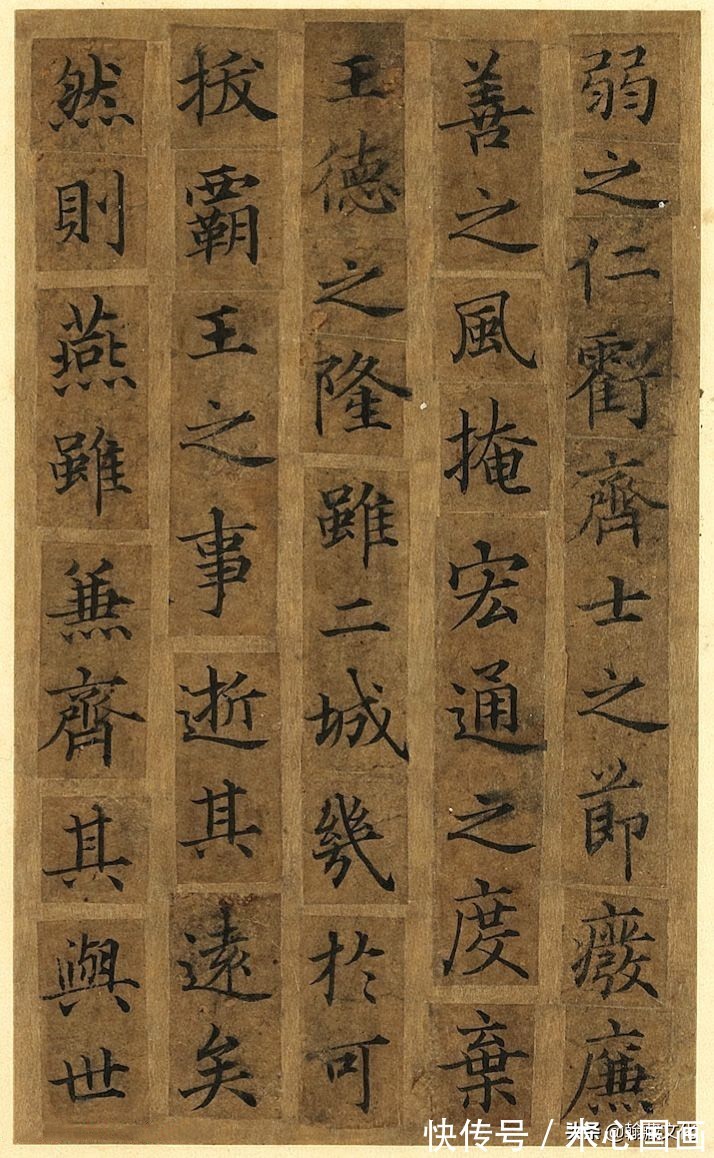 弱之仁虧齊士之節癈廉
善之風掩宏通之度棄
王德之隆雖二城幾於可
拔霸王之事逝其遠矣
然則燕雖兼齊其與世
快传号 / 米心国画